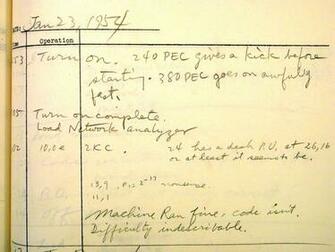 Jan 23, 1954
Operation
Turn on. 240 PEC gives a kick before
starting. 380 PEC goes on awfully
fast.
Turn on complete.
Load Network analyzer
10,0e 2KC. 24 has a dash P.U. at 26,16
or at least it seems to be.
13,9 nonsense.
11,1
Machine Ran fine. code isn't.
Difficulty indescribable.